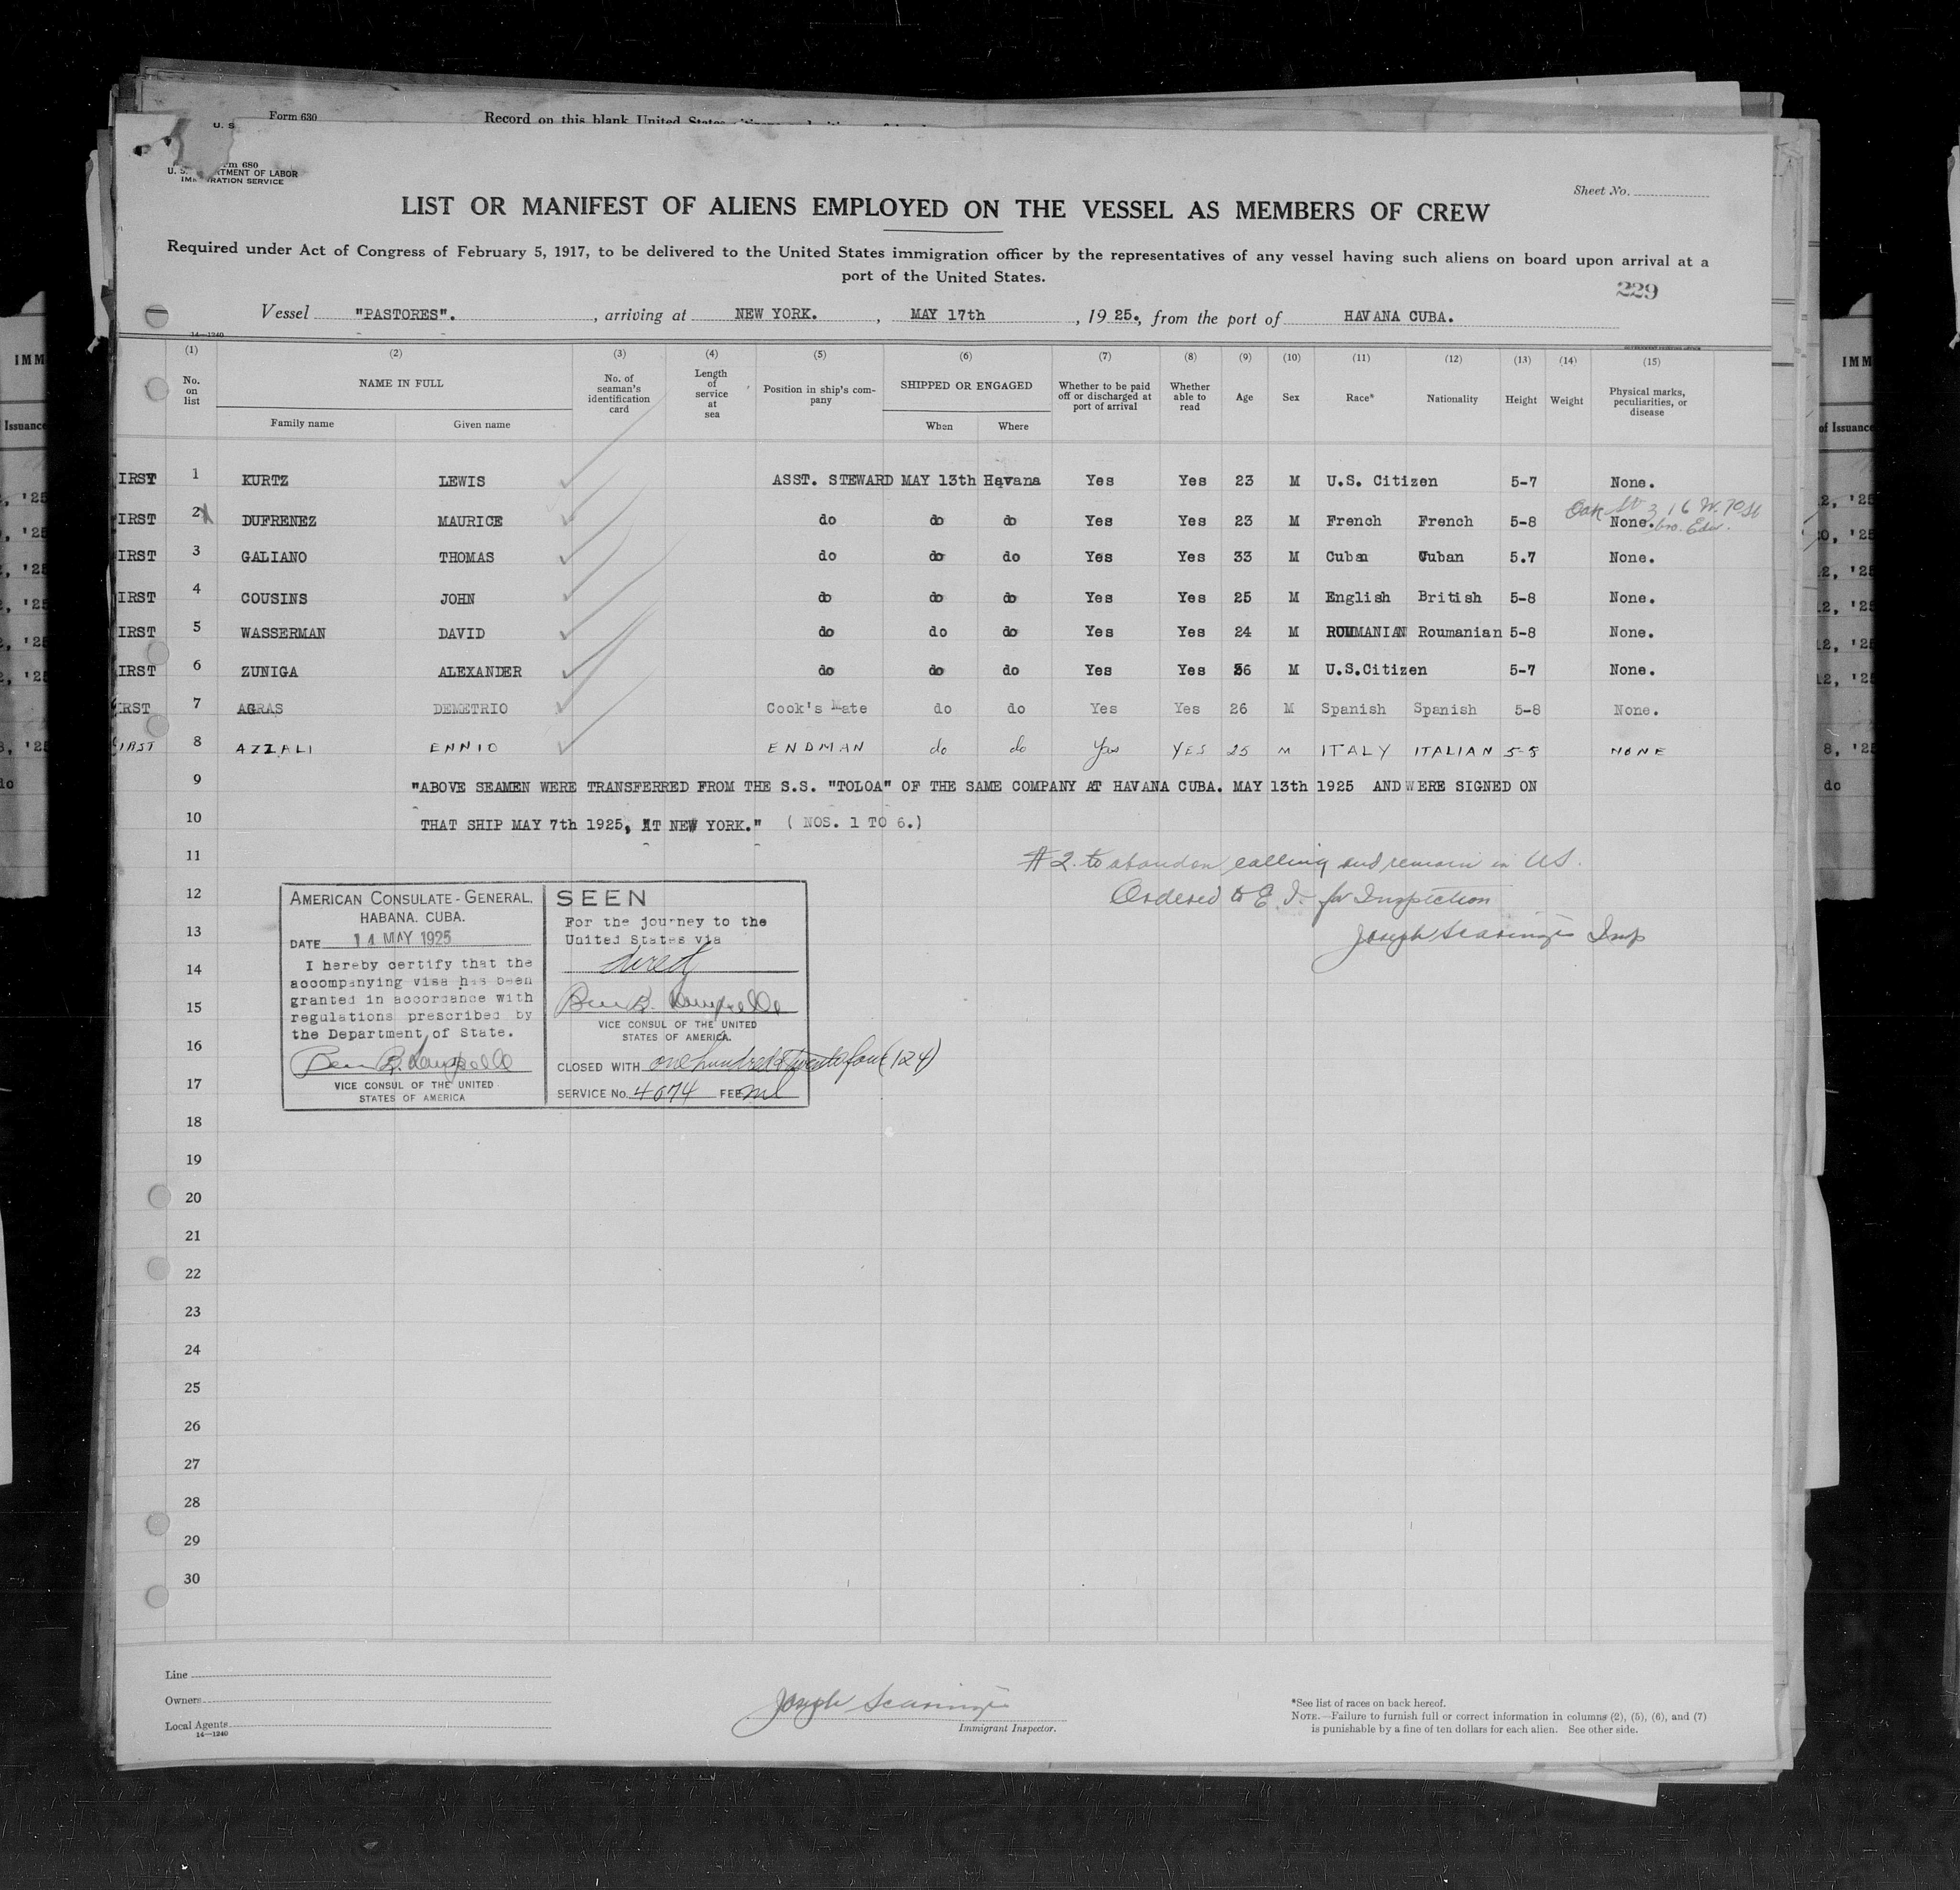 Form 630
Record on this blank United States
U. S
rm 680
U. S. TMENT OF LABOR
RATION SERVICE
Sheet No.
LIST OR MANIFEST OF ALIENS EMPLOYED ON THE VESSEL AS MEMBERS OF CREW
Required under Act of Congress of February 5, 1917, to be delivered to the United States immigration officer by the representatives of any vessel having such aliens on board upon arrival at a
port of the United States.
229
Vessel "PASTORES"., arriving at NEW YORK., MAY 17th, 1925., from the port of HAVANA CUBA.
14—1240
(1) (2) (3) (4) (5) (6) (7) (8) (9) (10) (11) (12) (13) (14) (15)
No. on list NAME IN FULL Family name Given name No. of seaman's identification card Length of service at sea Position in ship's com- pany SHIPPED OR ENGAGED When Where Whether to be paid off or discharged at port of arrival Whether able to read Age Sex Race* Nationality Height Weight Physical marks, peculiarities, or disease
IRST 1 KURTZ LEWIS ASST. STEWARD MAY 13th Havana Yes Yes 23 M U.S. Citizen 5-7 None.
316 W.
IRST 2 DUFRENEZ MAURICE do do do Yes Yes 23 M French French 5-8 None. bro. Edw.
IRST 3 GALIANO THOMAS do do do Yes Yes 33 M Cuban Cuban 5.7 None.
IRST 4 COUSINS JOHN do do do Yes Yes 25 M English British 5-8 None.
IRST 5 WASSERMAN DAVID do do do Yes Yes 24 M ROUMANIAN Roumanian 5-8 None.
IRST 6 ZUNIGA ALEXANDER do do do Yes Yes 36 M U.S.Citizen 5-7 None.
IRST 7 AGRAS DEMETRIO Cook's Mate do do Yes Yes 26 M Spanish Spanish 5-8 None.
IRST 8 AZZALI ENNIO ENDMAN do do Yes YES 25 M ITALY ITALIAN 5-5 NONE
9 "ABOVE SEAMEN WERE TRANSFERRED FROM THE S.S. "TOLOA" OF THE SAME COMPANY AT HAVANA CUBA. MAY 13th 1925 AND WERE SIGNED ON
10 THAT SHIP MAY 7th 1925, AT NEW YORK." ( NOS. 1 TO 6.)
11 #2 to abandon calling and remain in US.
12 Ordered to E. I. for Inspection
13 Joseph Scaringi Insp
AMERICAN CONSULATE-GENERAL,
HABANA. CUBA.
DATE 14 MAY 1925
I hereby certify that the
accompanying visa has been
granted in accordance with
regulations prescribed by
the Department of State.
VICE CONSUL OF THE UNITED
STATES OF AMERICA
SEEN
For the journey to the
United States via
direct
VICE CONSUL OF THE UNITED
STATES OF AMERICA.
CLOSED WITH one hundred & twenty four (124)
SERVICE No. 4074 FEE nil
14
15
16
17
18
19
20
21
22
23
24
25
26
27
28
29
30
Line
Owners
Local Agents
14—1240
Joseph Scaringi
Immigrant Inspector.
*See list of races on back hereof.
NOTE.—Failure to furnish full or correct information in columns (2), (5), (6), and (7)
is punishable by a fine of ten dollars for each alien. See other side.